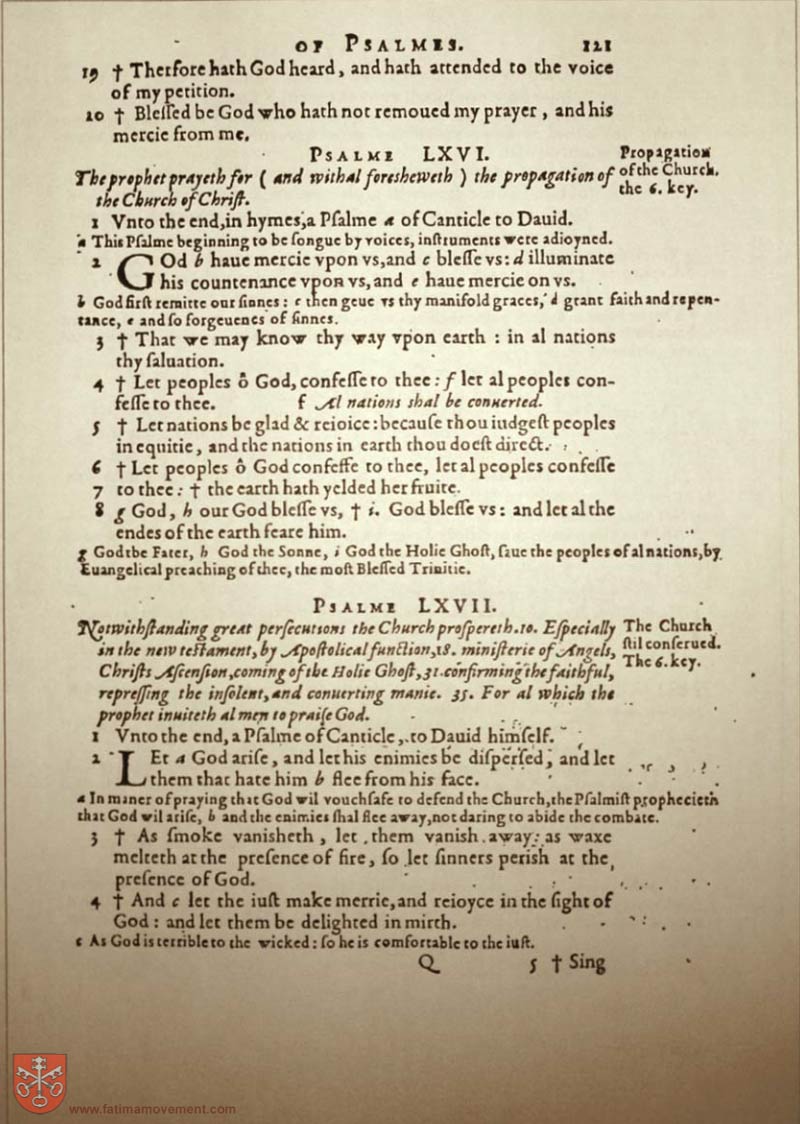 OF PSALMES. 121
19 † Therfore hath God heard, and hath attended to the voice
of my petition.
20 † Blessed be God who hath not remoued my prayer, and his
mercie from me.
PSALME LXVI.
Propagation
of the Church.
the 6. key.
The prophet prayeth for ( and withal foresheweth ) the propagation of
the Church of Christ.
1 Vnto the end, in hymes, a Psalme a of Canticle to Dauid.
a This Psalme beginning to be songue by voices, instruments were adioyned.
2 GOd b haue mercie vpon vs, and c blesse vs: d illuminate
his countenance vpon vs, and e haue mercie on vs.
b God first remitte our sinnes: c then geue vs thy manifold graces, d grant faith and repen-
tance, e and so forgeuenes of sinnes.
3 † That we may know thy way vpon earth : in al nations
thy saluation.
4 † Let peoples ô God, confesse to thee: f let al peoples con-
fesse to thee. f Al nations shal be conuerted.
5 † Let nations be glad & reioice: because thou iudgest peoples
in equitie, and the nations in earth thou doest direct.
6 † Let peoples ô God confesse to thee, let al peoples confesse
7 to thee: † the earth hath yelded her fruite.
8 g God, h our God blesse vs, † i. God blesse vs: and let al the
endes of the earth feare him.
g God the Fater, h God the Sonne, i God the Holie Ghost, saue the peoples of al nations, by
Euangelical preaching of thee, the most Blessed Trinitie.
PSALME LXVII.
Notwithstanding great persecutions the Church prospereth. 10. Especially
in the new testament, by Apostolical function, 18. ministerie of Angels,
Christs Ascension, coming of the Holie Ghost, 31. confirming the faithful,
repressing the insolent, and conuerting manie. 35. For al which the
prophet inuiteth al men to praise God.
The Church
stil conserued.
The 6. key.
1 Vnto the end, a Psalme of Canticle, to Dauid himself.
2 LEt a God arise, and let his enimies be dispersed, and let
them that hate him b flee from his face.
a In maner of praying that God wil vouchsafe to defend the Church, the Psalmist prophecieth
that God wil arise, b and the enimies shal flee away, not daring to abide the combate.
3 † As smoke vanisheth, let them vanish away: as waxe
melteth at the presence of fire, so let sinners perish at the
presence of God.
4 † And c let the iust make merrie, and reioyce in the sight of
God : and let them be delighted in mirth.
c As God is terrible to the wicked: so he is comfortable to the iust.
Q 5 † Sing
www.fatimamovement.com